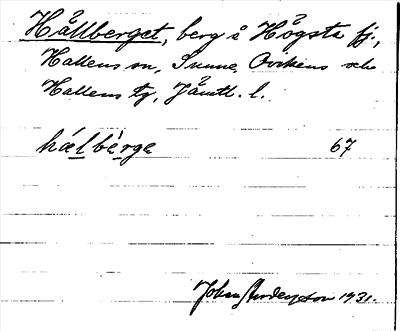 Hållberget, berg å Högsta fj.,
Hallens sn, Sunne, Ovikens och
Hallens tg, Jämtl. l.
hálbèrge 67
John Andersson 1931.